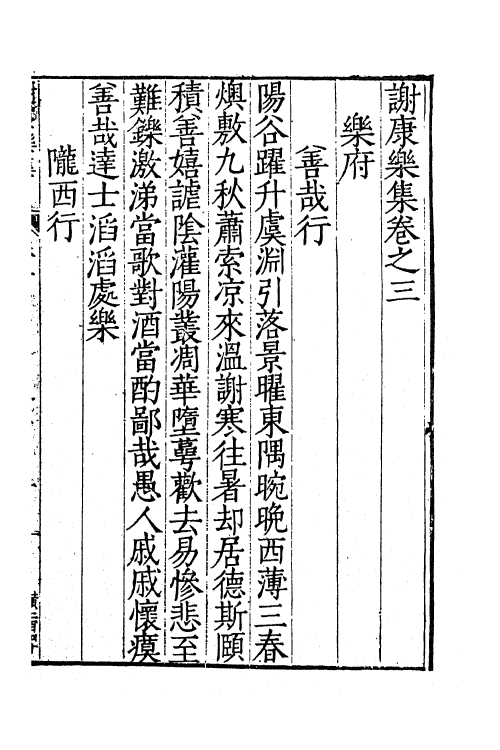 謝康樂集卷之三
樂府
善哉行
陽谷躍升虞淵引落景曜東隅晼晚西薄三春
燠敷九秋蕭索凉來溫謝寒往暑却居德斯頤
積善嬉謔陰灌陽叢凋華墮萼歡去易慘悲至
難鑠激涕當歌對酒當酌鄙哉愚人戚戚懷瘼
善哉達士滔滔處樂
隴西行